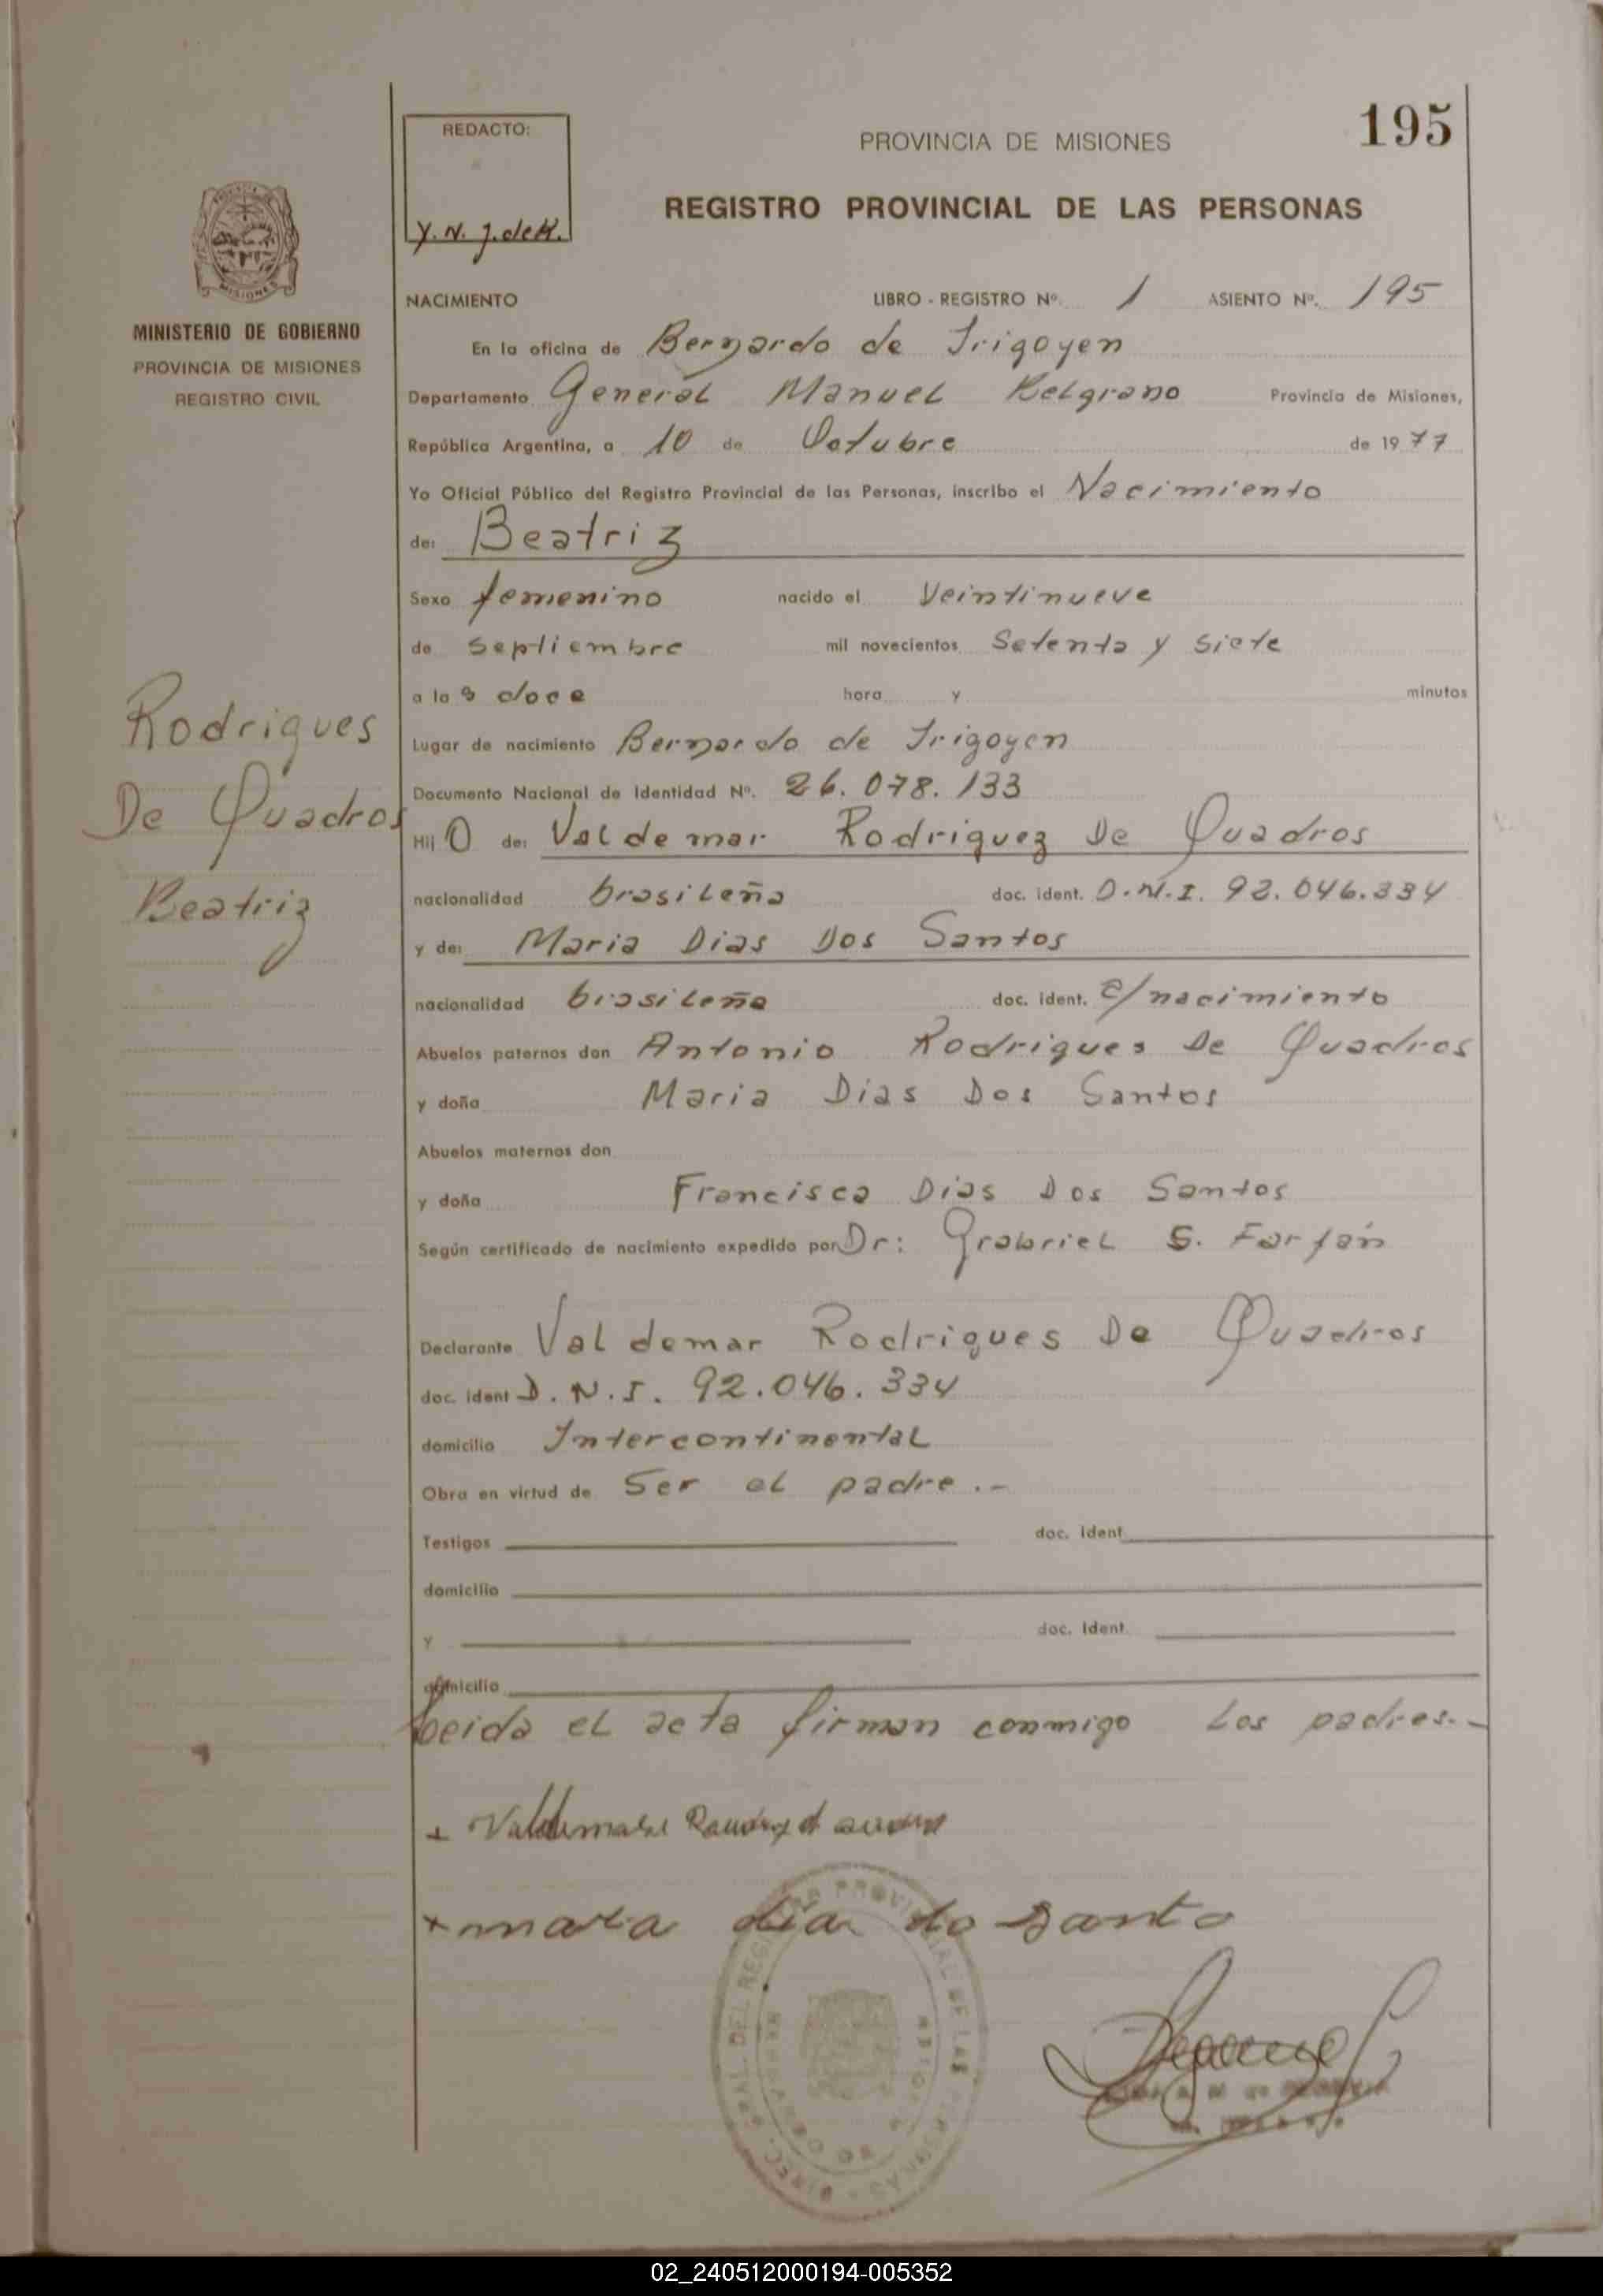 195
REDACTO:
Y. N. J. de K.
PROVINCIA DE MISIONES
REGISTRO PROVINCIAL DE LAS PERSONAS
MISIONES
MINISTERIO DE GOBIERNO
PROVINCIA DE MISIONES
REGISTRO CIVIL
NACIMIENTO LIBRO - REGISTRO Nº. 1 ASIENTO Nº. 195
En la oficina de Bernardo de Irigoyen
Departamento General Manuel Belgrano Provincia de Misiones,
República Argentina, a 10 de Octubre de 1977
Yo Oficial Público del Registro Provincial de las Personas, inscribo el Nacimiento
de: Beatriz
Sexo femenino nacido el Veintinueve
de Septiembre mil novecientos Setenta y Siete
a las doce hora y minutos
Rodrigues
De Quadros
Beatriz
Lugar de nacimiento Bernardo de Irigoyen
Documento Nacional de Identidad Nº. 26.078.133
Hij O de: Valdemar Rodriguez De Quadros
nacionalidad brasileña doc. ident. D.N.I. 92.046.334
y de: Maria Dias Dos Santos
nacionalidad brasileña doc. ident. C/nacimiento
Abuelos paternos don Antonio Rodrigues De Quadros
y doña Maria Dias Dos Santos
Abuelos maternos don
y doña Francisca Dias Dos Santos
Según certificado de nacimiento expedido por Dr: Grabriel S. Farfán
Declarante Valdemar Rodrigues De Quadros
doc. ident D.N.I. 92.046.334
domicilio Intercontinental
Obra en virtud de Ser el padre.-
Testigos doc. ident
domicilio
y doc. ident
domicilio
Leida el acta firman conmigo los padres.-
+ Valdemar
+ maria dia do santo
DIREC. GRAL DEL REGISTRO PROVINCIAL DE LAS PERSONAS
02_240512000194-005352